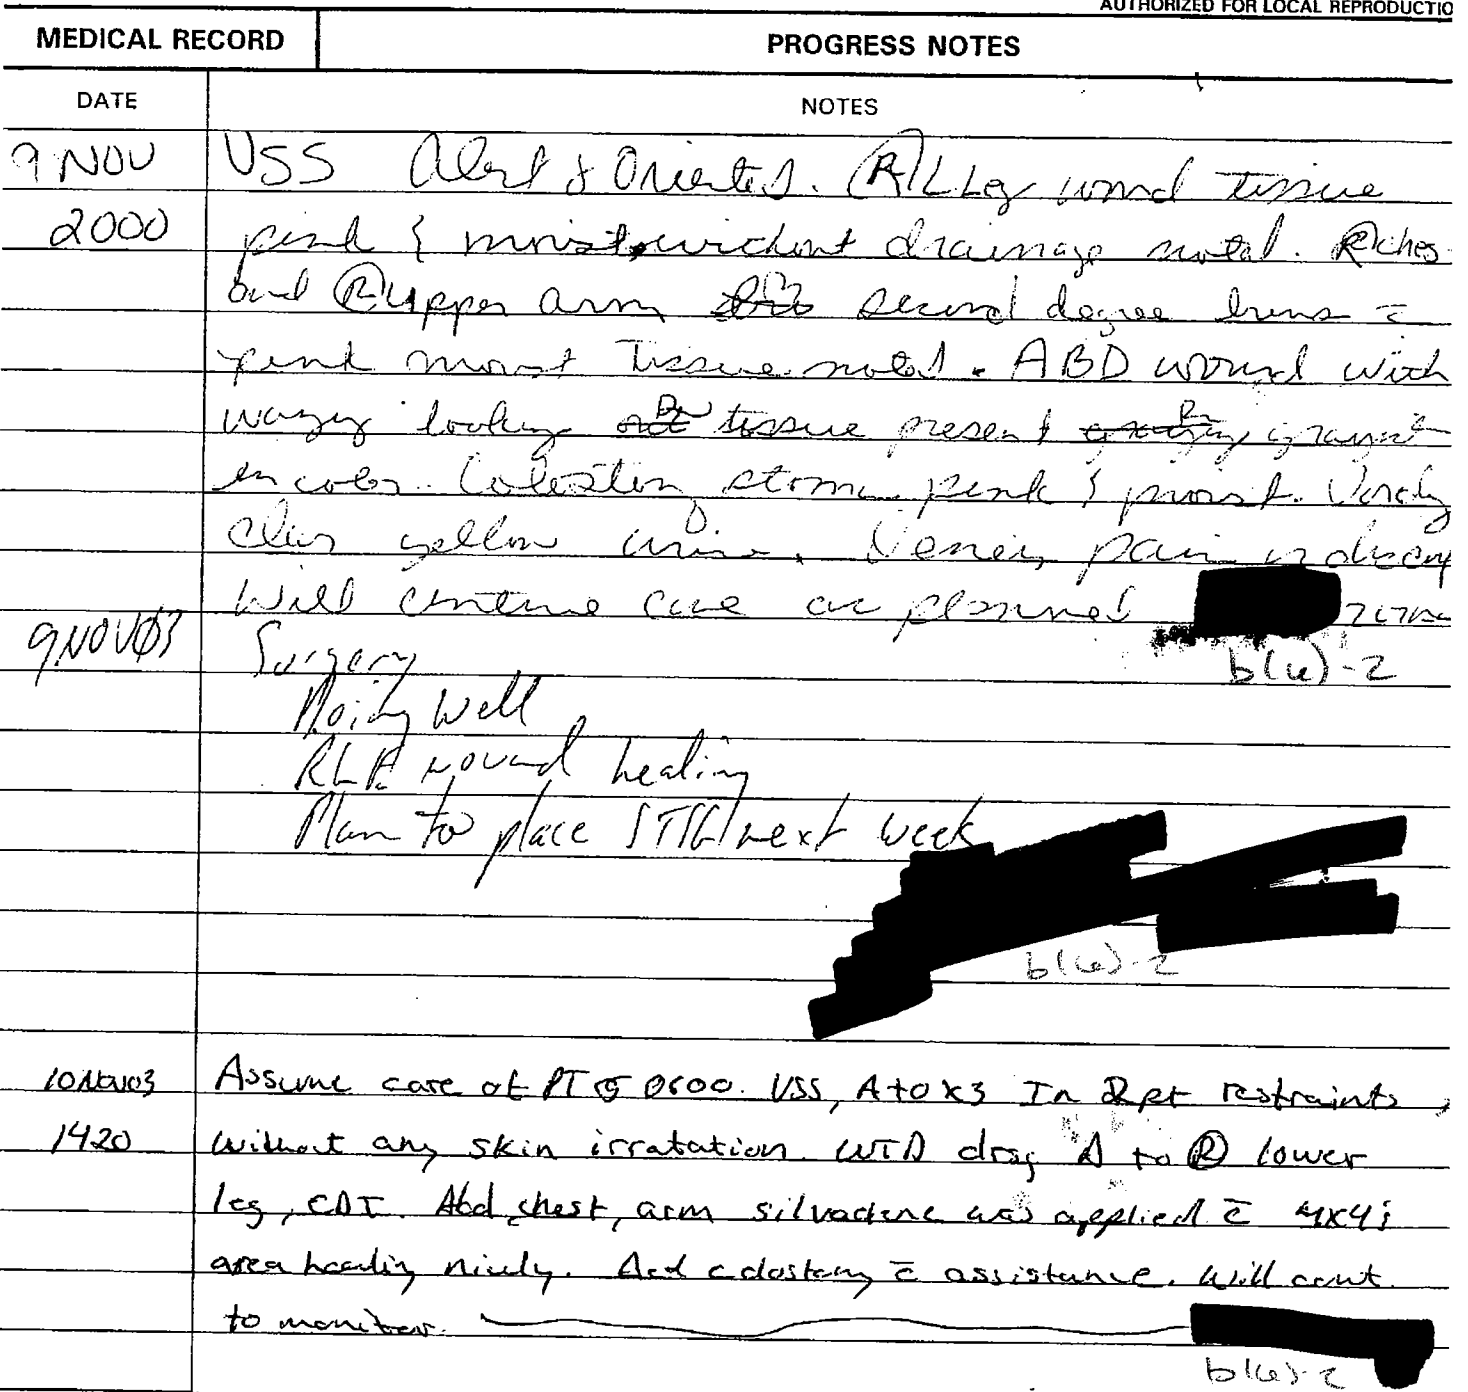 AUTHORIZED FOR LOCAL REPRODUCTIO
MEDICAL RECORD PROGRESS NOTES
DATE NOTES
9 NOV VSS Alert & Oriented. Ⓡ LLeg wound tissue
2000 pink & moist without drainage noted. Ⓡ ches
and Ⓡ upper arm second degree burns c̄
pink moist tissue noted. ABD wound with
waxy looking tissue present grayish
in color. Colostomy stoma pink & moist.
clear yellow urine. Denies pain
Will continue care as planned
b(6)-2
9 NOV 03 Surgery
Doing well
wound healing
Plan to place STSG next week
b(6)-2
10 NOV 03 Assume care of PT @ 0600. VSS, A+O x3 In 2pt restraints,
1420 without any skin irratation. WTD drsg Δ to Ⓡ lower
leg, CDI. Abd, chest, arm silvadene was applied c̄ 4x4;
area healing nicely. colostomy c̄ assistance. Will cont.
to monitor.
b(6)-2